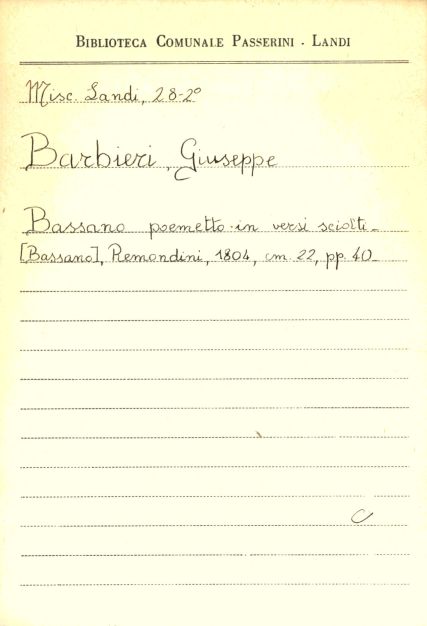 BIBLIOTECA COMUNALE PASSERINI - LANDI
Misc. Landi, 28-2º
Barbieri, Giuseppe
Bassano poemetto in versi sciolti -
[Bassano], Remondini, 1804, cm. 22, pp. 40 -
C